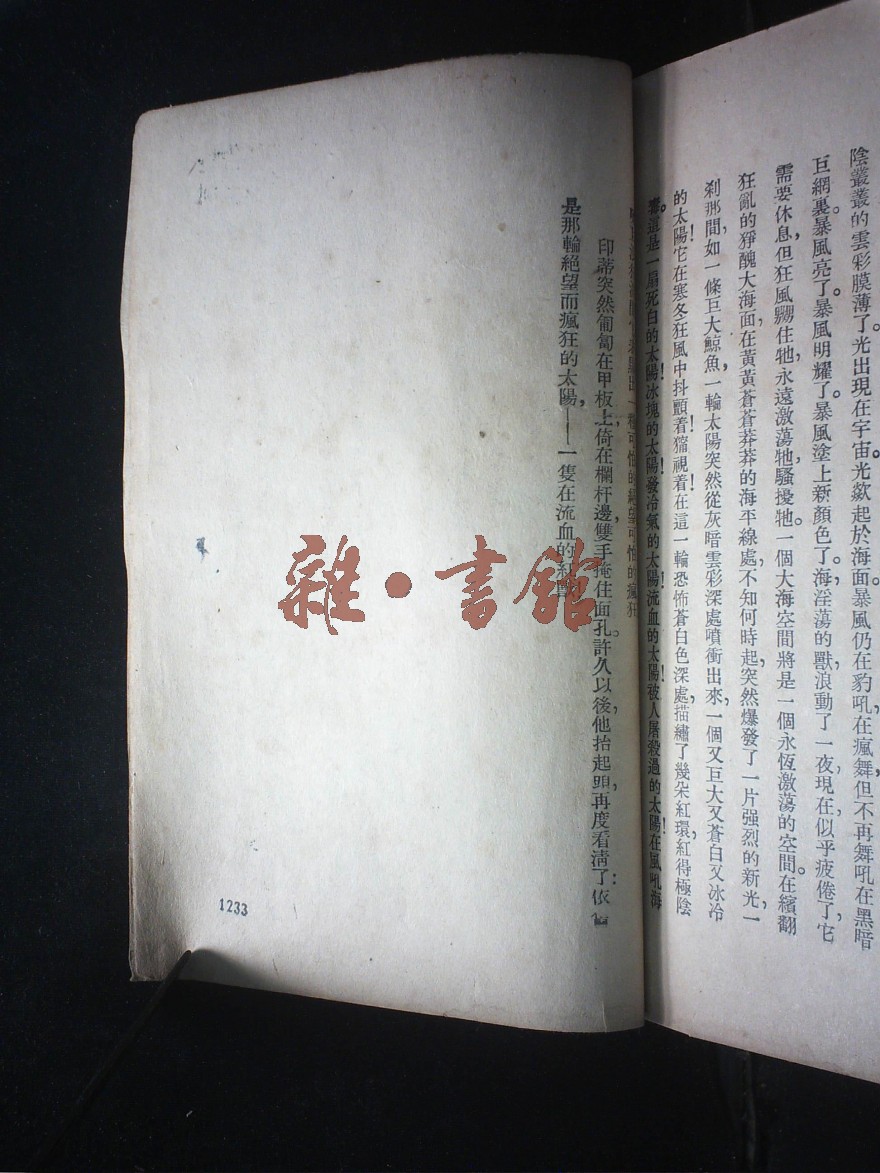 陰叢叢的雲彩膜薄了。光出現在宇宙。光歘起於海面。暴風仍在豹吼，在瘋舞，但不再舞吼在黑暗
巨網裏。暴風亮了。暴風明耀了。暴風塗上新顏色了。海淫蕩的獸浪動了一夜，現在似乎疲倦了，它
需要休息，但狂風嬲住牠，永遠激蕩牠，騷擾牠。一個大海空間將是一個永恆激蕩的空間。在繽翻
狂亂的猙醜大海面，在黃黃蒼蒼莽莽的海平線處，不知何時起，突然爆發了一片强烈的新光，一
剎那間，如一條巨大鯨魚，一輪太陽突然從灰暗雲彩深處噴衝出來，一個又巨大又蒼白又冰冷
的太陽！它在寒冬狂風中抖顫着！獝視着！在這一輪恐怖蒼白色深處，描繡了幾朵紅環，紅得極陰
毒。這是一扇死白的太陽！冰塊的太陽！發冷氣的太陽！流血的太陽！被人屠殺過的太陽！在風吼海
可怕的絕望可怕的瘋狂
印蒂突然匍匐在甲板上，倚在欄杆邊，雙手掩住面孔。許久以後，他抬起頭，再度看淸了：依舊
是那輪絕望而瘋狂的太陽，——一隻在流血的
1233
雜·書館